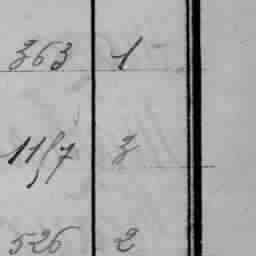 363 1
1157 3
526 2